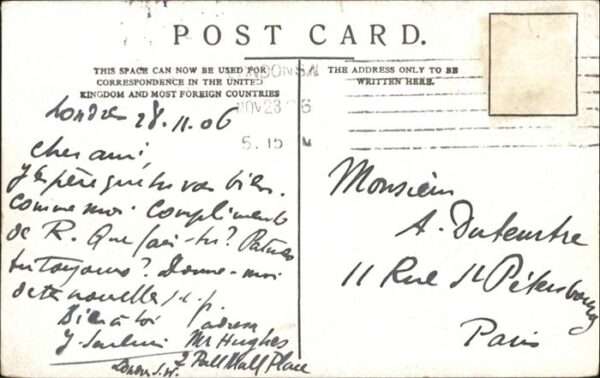 POST CARD.
THIS SPACE CAN NOW BE USED FOR
CORRESPONDENCE IN THE UNITED
KINGDOM AND MOST FOREIGN COUNTRIES
THE ADDRESS ONLY TO BE
WRITTEN HERE.
LONDON S.W
NOV 28 06
5. 15 M
Londres 28.11.06
Cher ami,
J'espère que tu vas bien.
Comme moi. Compliments
de R. Que fais-tu? Patines
tu toujours? Donne-moi
de tes nouvelles s.v.p.
Bien à toi adresse
Mr Hughes
2 Pall Mall Place
London S.W.
Monsieur
A.
11 Rue St Pétersbourg
Paris